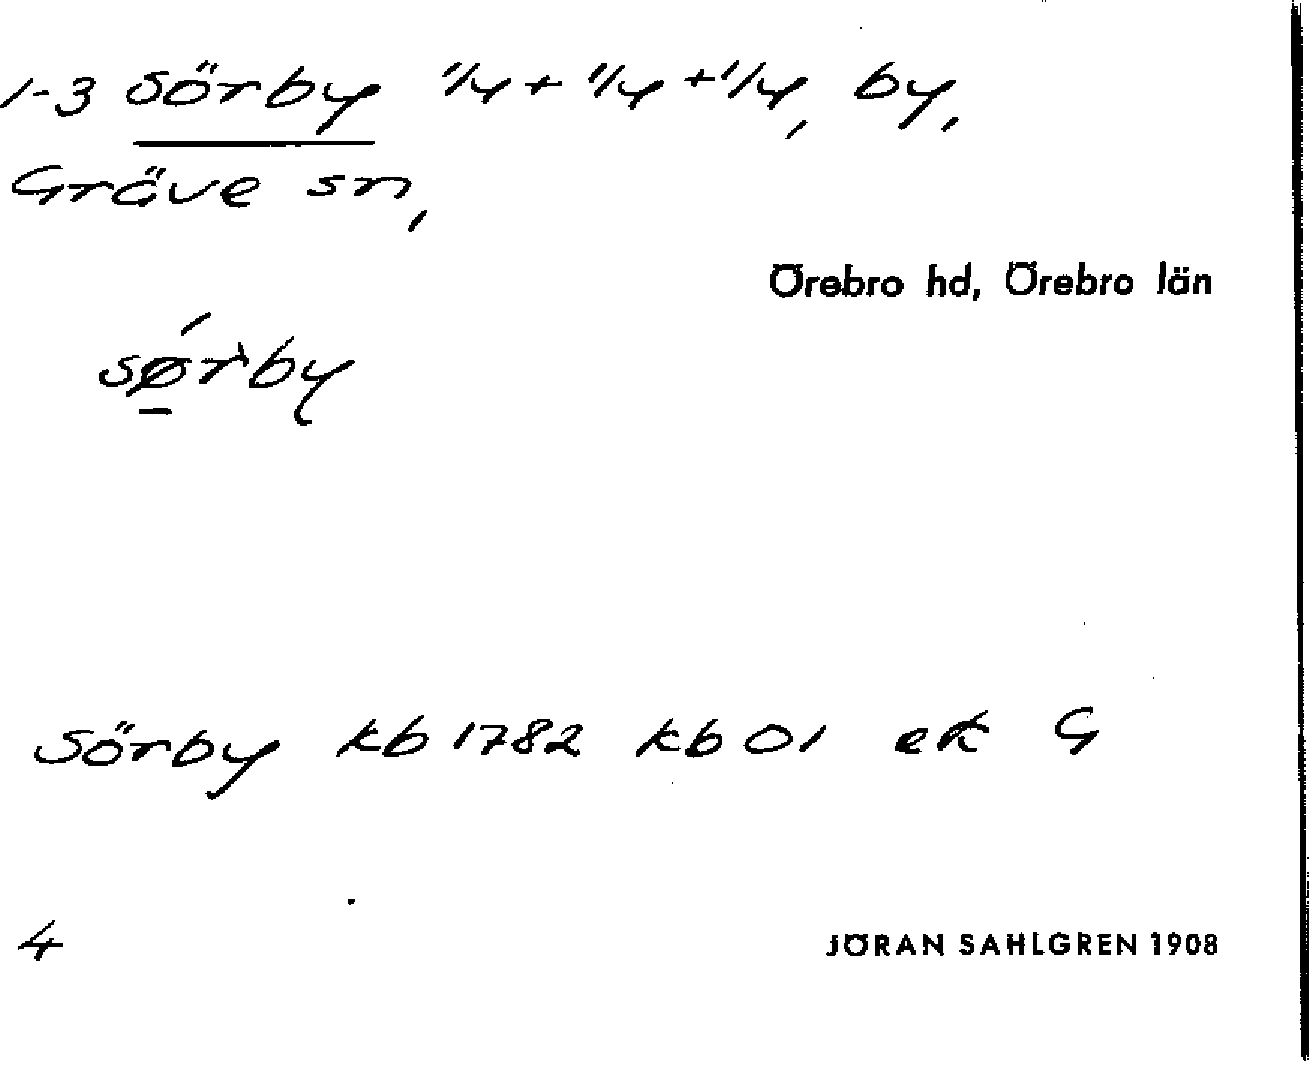 1-3 Sörby 1/4 + 1/4 + 1/4, by,
Gräve sn,
Örebro hd, Örebro län
sǿ̱rˋby
Sörby kb 1782 kb 01 ek G
4
JÖRAN SAHLGREN 1908